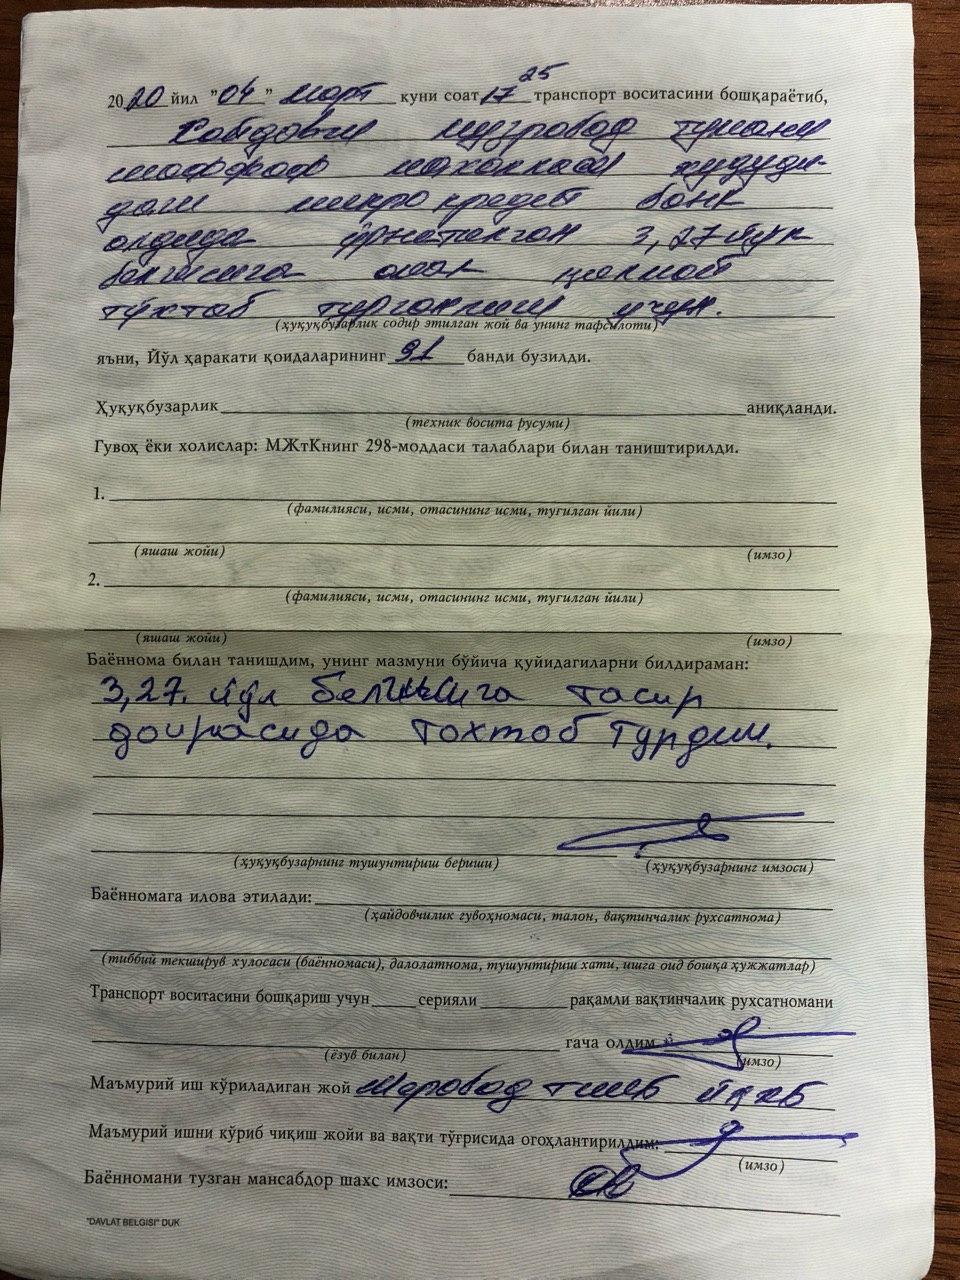 2020 йил "04" март куни соат 17 25 транспорт воситасини бошқараётиб,
тумани
маҳалласи ҳудуди-
даги микрокредит банк
олдида ўрнатилган 3,27 йўл
белгисига амал қилмай
тўхтаб турганлиги учун.
(ҳуқуқбузарлик содир этилган жой ва унинг тафсилоти)
яъни, Йўл ҳаракати қоидаларининг 91 банди бузилди.
Ҳуқуқбузарлик аниқланди.
(техник восита русуми)
Гувоҳ ёки холислар: МЖтКнинг 298-моддаси талаблари билан таништирилди.
1.
(фамилияси, исми, отасининг исми, туғилган йили)
(яшаш жойи) (имзо)
2.
(фамилияси, исми, отасининг исми, туғилган йили)
(яшаш жойи) (имзо)
Баённома билан танишдим, унинг мазмуни бўйича қуйидагиларни билдираман:
3,27. йўл белгисига тасир
доирасида тохтоб турдим.
(ҳуқуқбузарнинг тушунтириш бериши) (ҳуқуқбузарнинг имзоси)
Баённомага илова этилади:
(ҳайдовчилик гувоҳномаси, талон, вақтинчалик рухсатнома)
(тиббий текширув хулосаси (баённомаси), далолатнома, тушунтириш хати, ишга оид бошқа ҳужжатлар)
Транспорт воситасини бошқариш учун серияли рақамли вақтинчалик рухсатномани
гача олдим
(ёзув билан) (имзо)
Маъмурий иш кўриладиган жой Меробод ЙҲХБ
Маъмурий ишни кўриб чиқиш жойи ва вақти тўғрисида огоҳлантирилдим:
(имзо)
Баённомани тузган мансабдор шахс имзоси:
"DAVLAT BELGISI" DUK